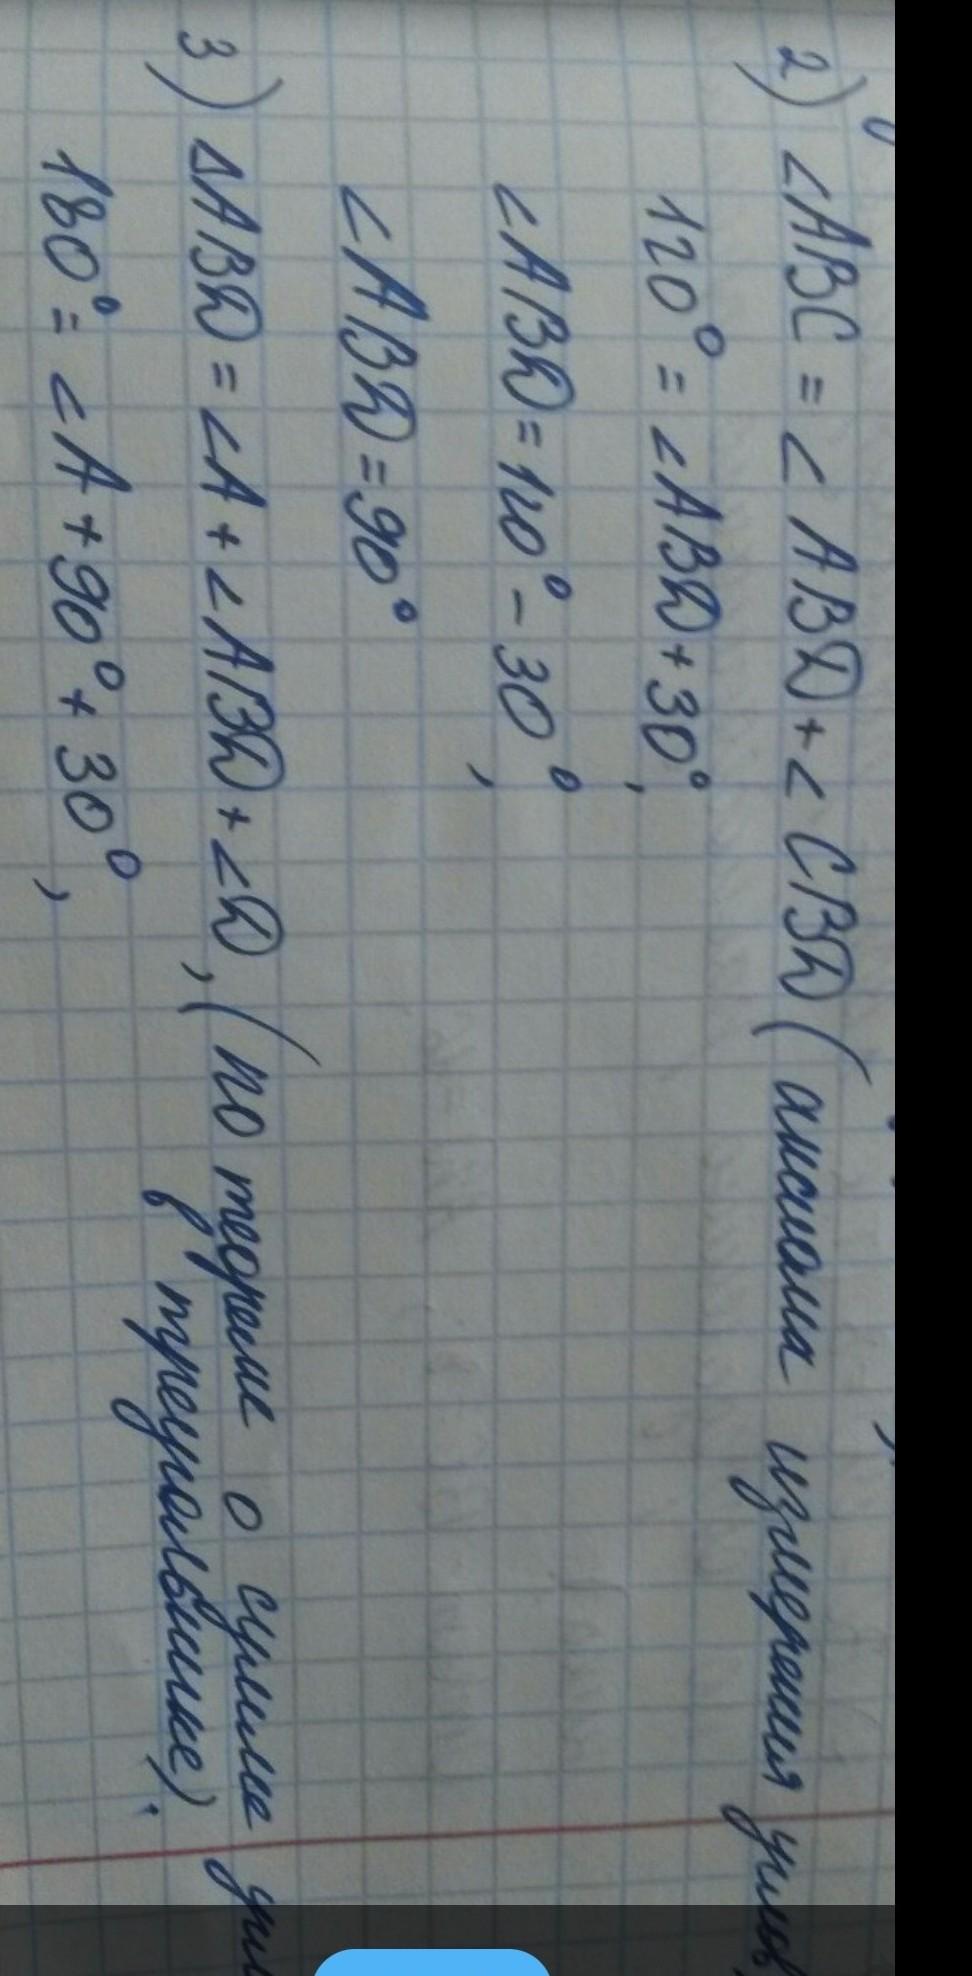 2) <ABC = < ABD + < CBD ( аксиома измерения углов
120° = <ABD + 30°,
<ABD = 120° - 30°,
<ABD = 90°
3) ΔABD = <A + <ABD + <D, (по теореме о сумме угл
в треугольнике).
180° = <A + 90° + 30°,